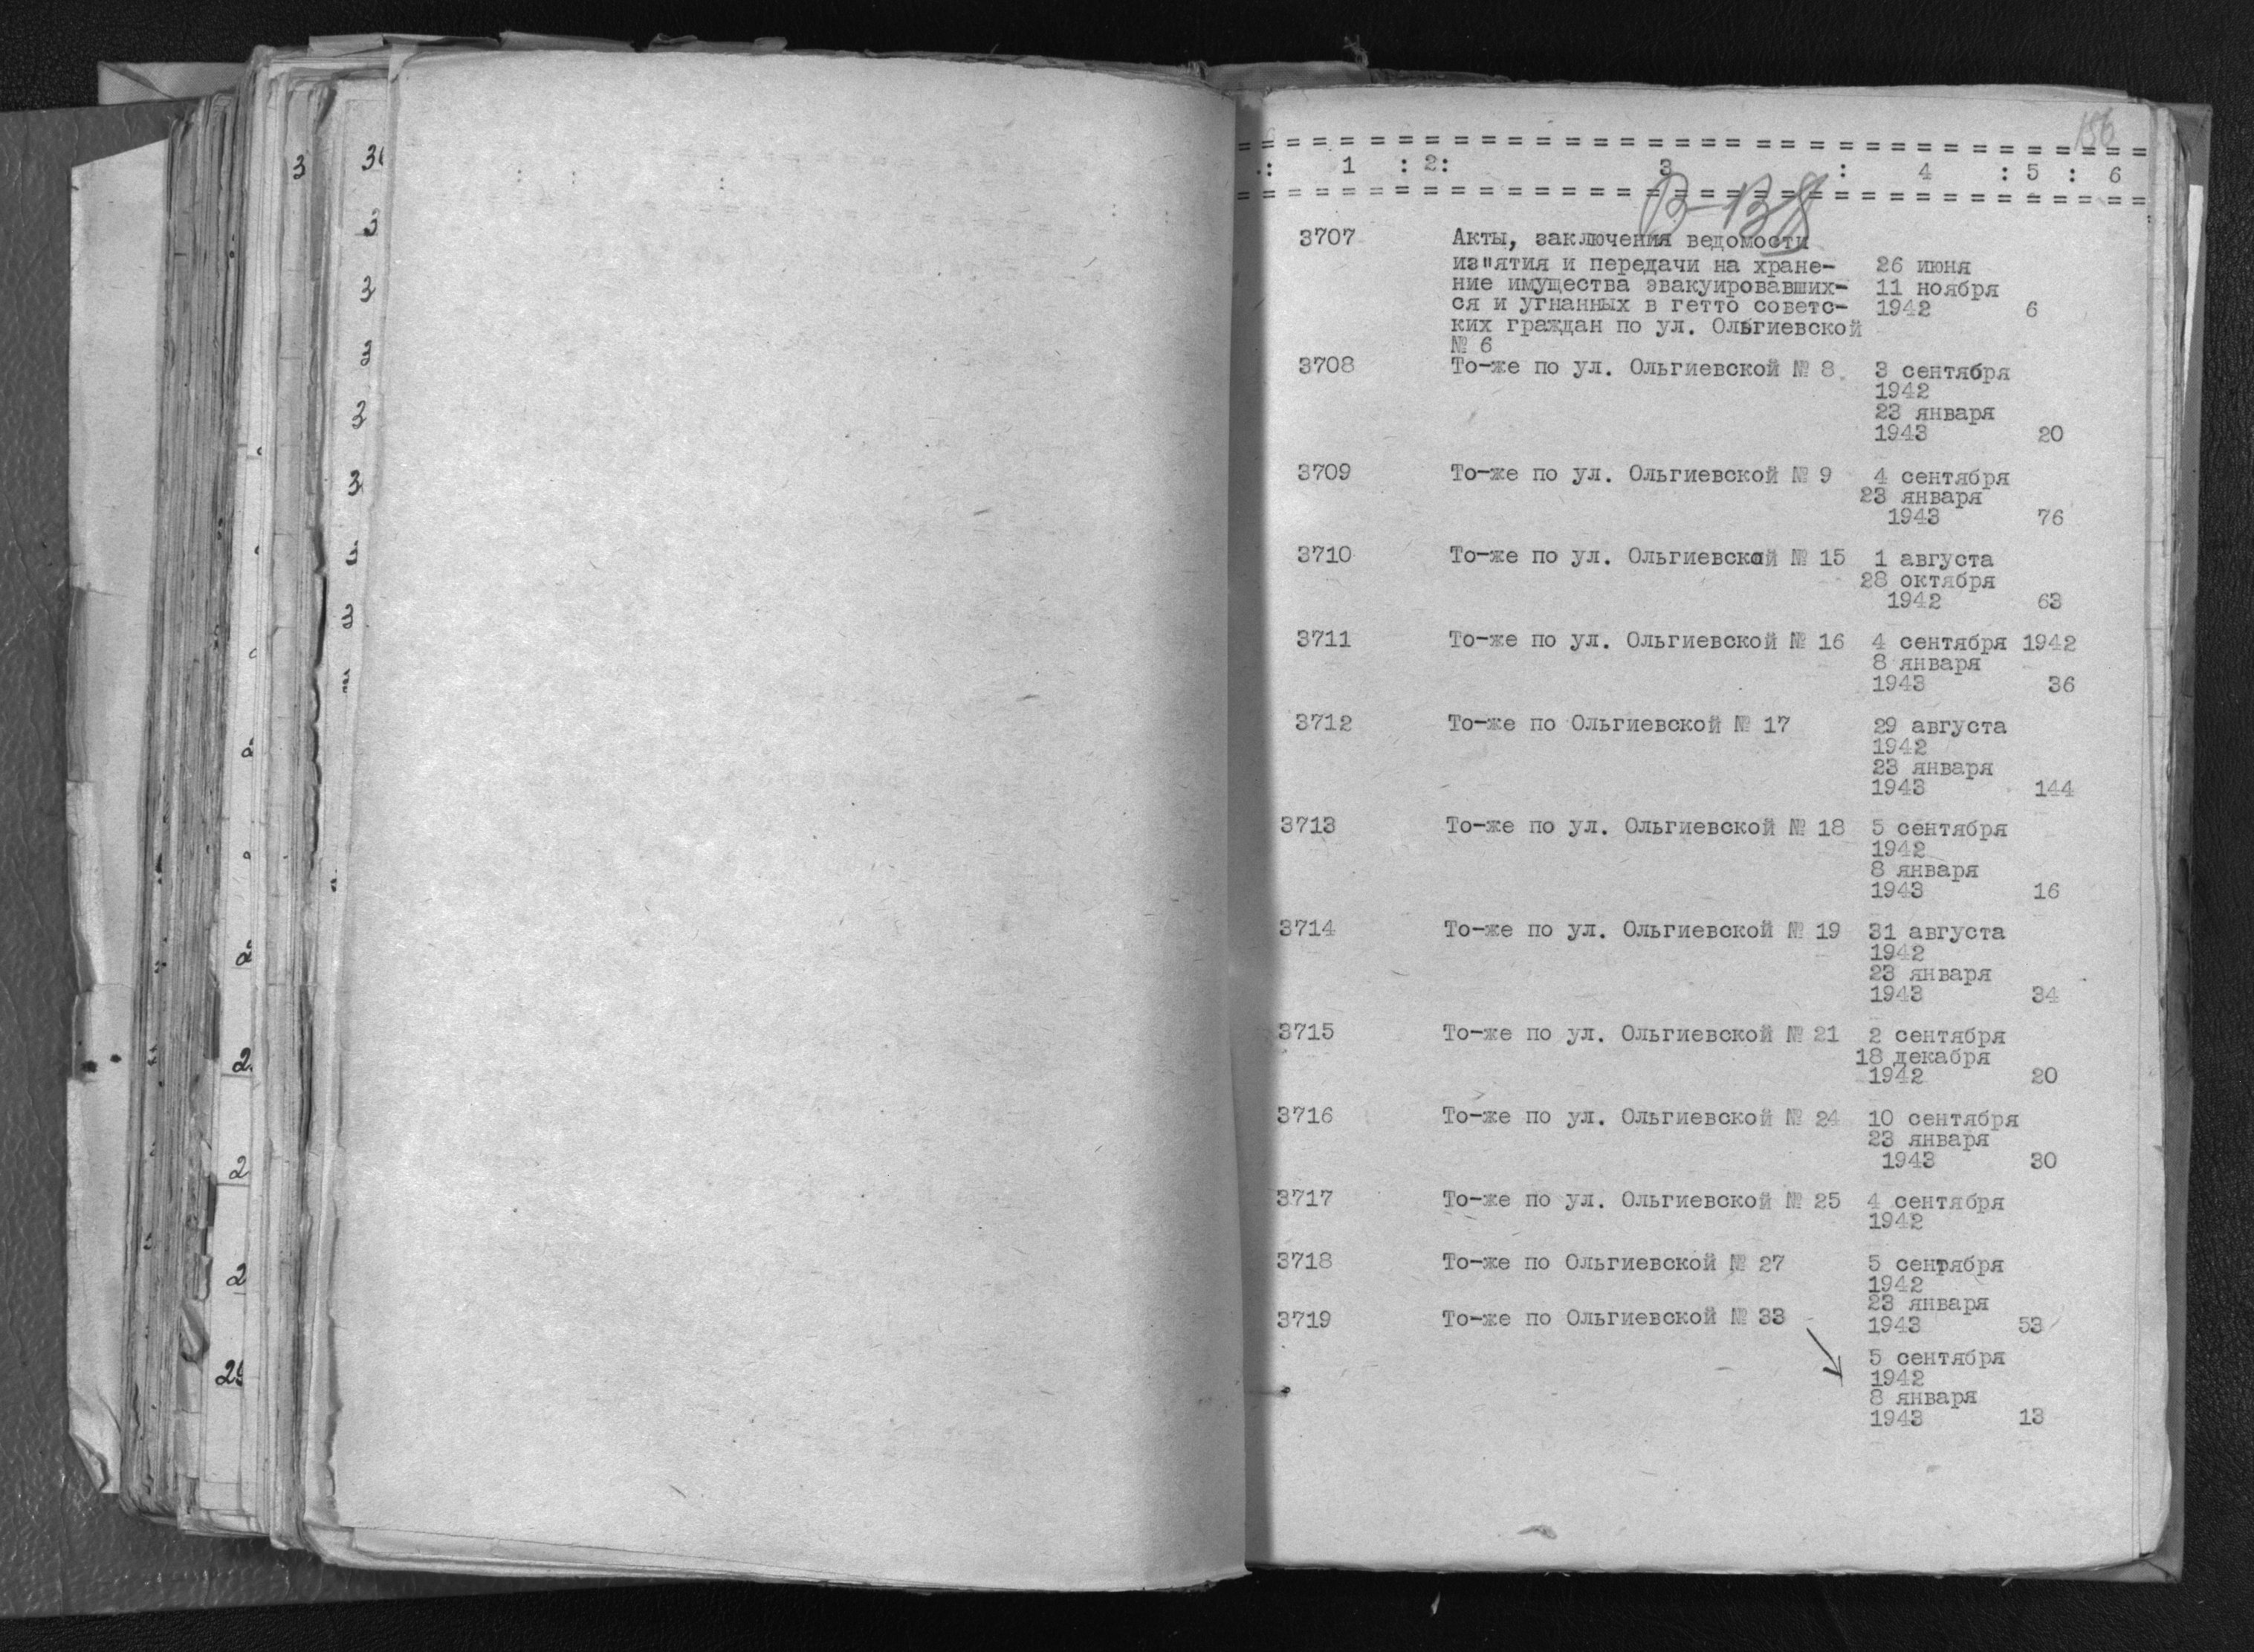 156
= = = = = = = = = = = = = = = = = = = = = = = = = = = = = = = = = = = = = =
: 1 : 2: 3 : 4 : 5 : 6
= = = = = = = = = = = = = = = = = = = = = = = = = = = = = = = = = = = = = =
3707 Акты, заключения ведомости
из"ятия и передачи на хране- 26 июня
ние имущества эвакуировавших- 11 ноября
ся и угнанных в гетто советс- 1942 6
ких граждан по ул. Ольгиевской
№ 6
3708 То-же по ул. Ольгиевской № 8 3 сентября
1942
23 января
1943 20
3709 То-же по ул. Ольгиевской № 9 4 сентября
23 января
1943 76
3710 То-же по ул. Ольгиевской № 15 1 августа
28 октября
1942 63
3711 То-же по ул. Ольгиевской № 16 4 сентября 1942
8 января
1943 36
3712 То-же по Ольгиевской № 17 29 августа
1942
23 января
1943 144
3713 То-же по ул. Ольгиевской № 18 5 сентября
1942
8 января
1943 16
3714 То-же по ул. Ольгиевской № 19 31 августа
1942
23 января
1943 34
3715 То-же по ул. Ольгиевской № 21 2 сентября
18 декабря
1942 20
3716 То-же по ул. Ольгиевской № 24 10 сентября
23 января
1943 30
3717 То-же по ул. Ольгиевской № 25 4 сентября
1942
3718 То-же по Ольгиевской № 27 5 сентября
1942
23 января
3719 То-же по Ольгиевской № 33 1943 53
5 сентября
1942
8 января
1943 13